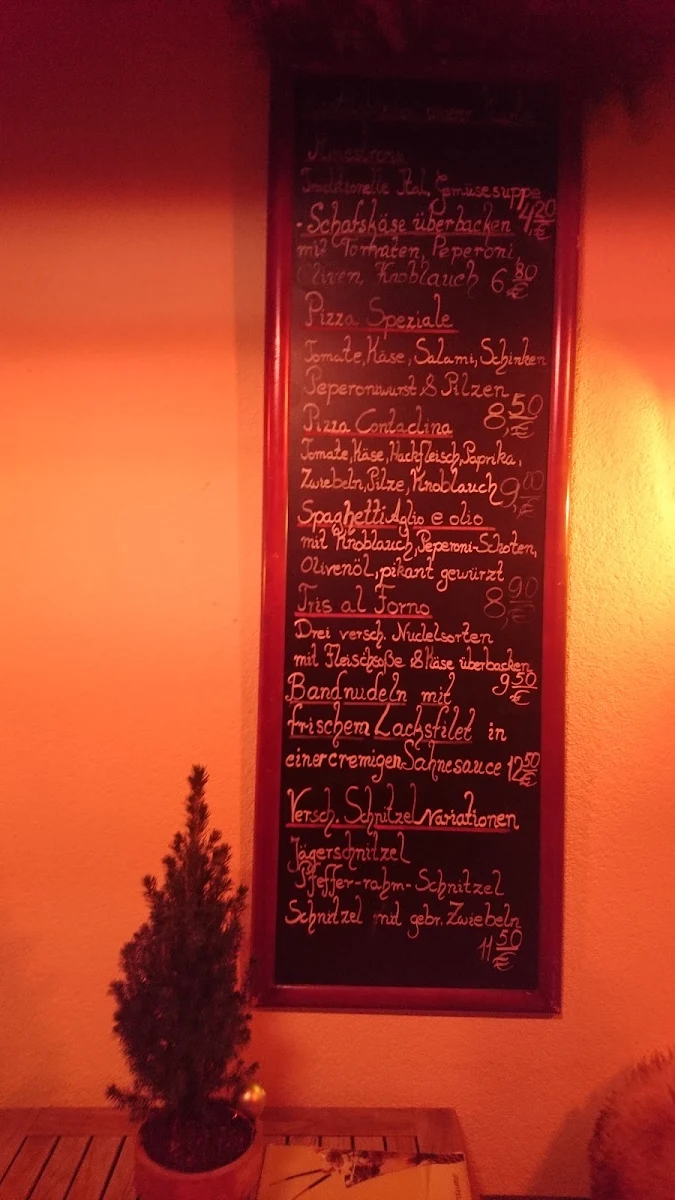 Minestrone
Traditionelle Ital. Gemüsesuppe
4,20 €
- Schafskäse überbacken
mit Tomaten, Peperoni,
Oliven, Knoblauch 6,80 €
Pizza Speziale
Tomate, Käse, Salami, Schinken
Peperoniwurst & Pilzen
8,50 €
Pizza Contadina
Tomate, Käse, Hackfleisch, Paprika,
Zwiebeln, Pilze, Knoblauch 9,00 €
Spaghetti Aglio e olio
mit Knoblauch, Peperoni-Schoten,
Olivenöl, pikant gewürzt
8,90 €
Tris al Forno
Drei versch. Nudelsorten
mit Fleischsoße & Käse überbacken
9,50 €
Bandnudeln mit
frischem Lachsfilet in
einer cremigen Sahnesauce 12,50 €
Versch. Schnitzel Variationen
Jägerschnitzel
Pfeffer-rahm-Schnitzel
Schnitzel mit gebr. Zwiebeln
11,50 €